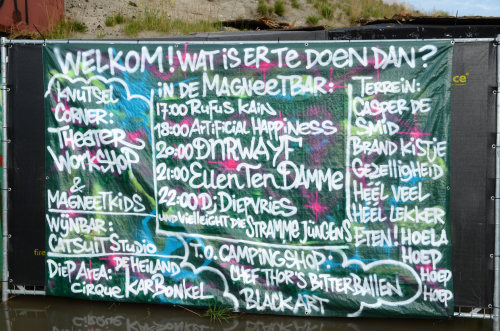 WELKOM! WAT IS ER TE DOEN DAN?
KNUTSEL
CORNER:
THEATER
WORKSHOP
&
MAGNEETKIDS
WIJNBAR:
CATSUIT STUDIO
DIEP AREA: DE HEILAND
CIRQUE KARBONKEL
IN DE MAGNEETBAR:
17:00 RUFUS KAIN
18:00 ARTIFICIAL HAPPINESS
20:00 DNRWAYF
21:00 EUENTENDAMME
22:00 DJ DIEPVRIES
UND VIELLEICHT DIE STRAMME JUNGENS
T.O. CAMPINGSHOP:
CHEF THOR'S BITTERBALLEN
BLACK ART
TERREIN:
CASPER DE
SMID
BRANDKISTJE
GEZELLIGHEID
HEEL VEEL
HEEL LEKKER
ETEN! HOELA
HOEP
HOEP
HOEP
ce
fire